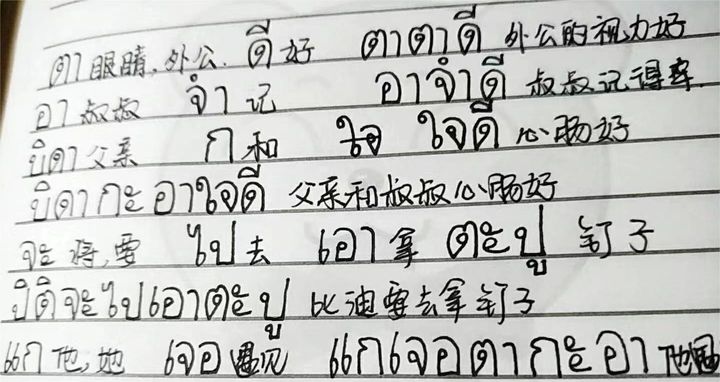 ตา 眼睛,外公. ดี 好 ตาตาดี 外公的视力好
อา 叔叔 จำ 记 อาจำดี 叔叔记得牢
บิดา 父亲 ก 和 ใจ ใจดี 心肠好
บิดากะอาใจดี 父亲和叔叔心肠好
จะ 将,要 ไป 去 เอา 拿 ตะปู 钉子
ปิติจะไปเอาตะปู 比迪要去拿钉子
แก 他,她 เจอ 遇见 แกเจอตากะอา 他遇